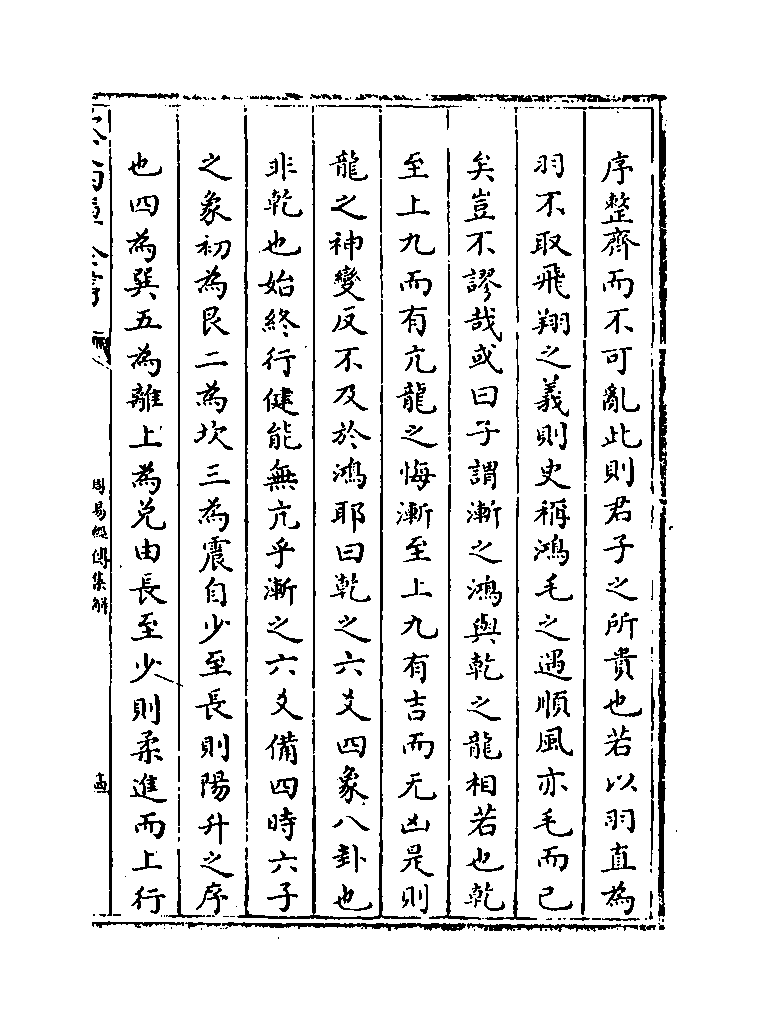 序整齊而不可亂此則君子之所貴也若以羽直為
羽不取飛翔之義則史稱鴻毛之遇順風亦毛而已
矣豈不謬哉或曰子謂漸之鴻與乾之龍相若也乾
至上九而有亢龍之悔漸至上九有吉而无凶是則
龍之神變反不及於鴻耶曰乾之六爻四象八卦也
非乾也始終行健能無亢乎漸之六爻備四時六子
之象初為艮二為坎三為震自少至長則陽升之序
也四為巽五為離上為兌由長至少則柔進而上行
周易經傳集解